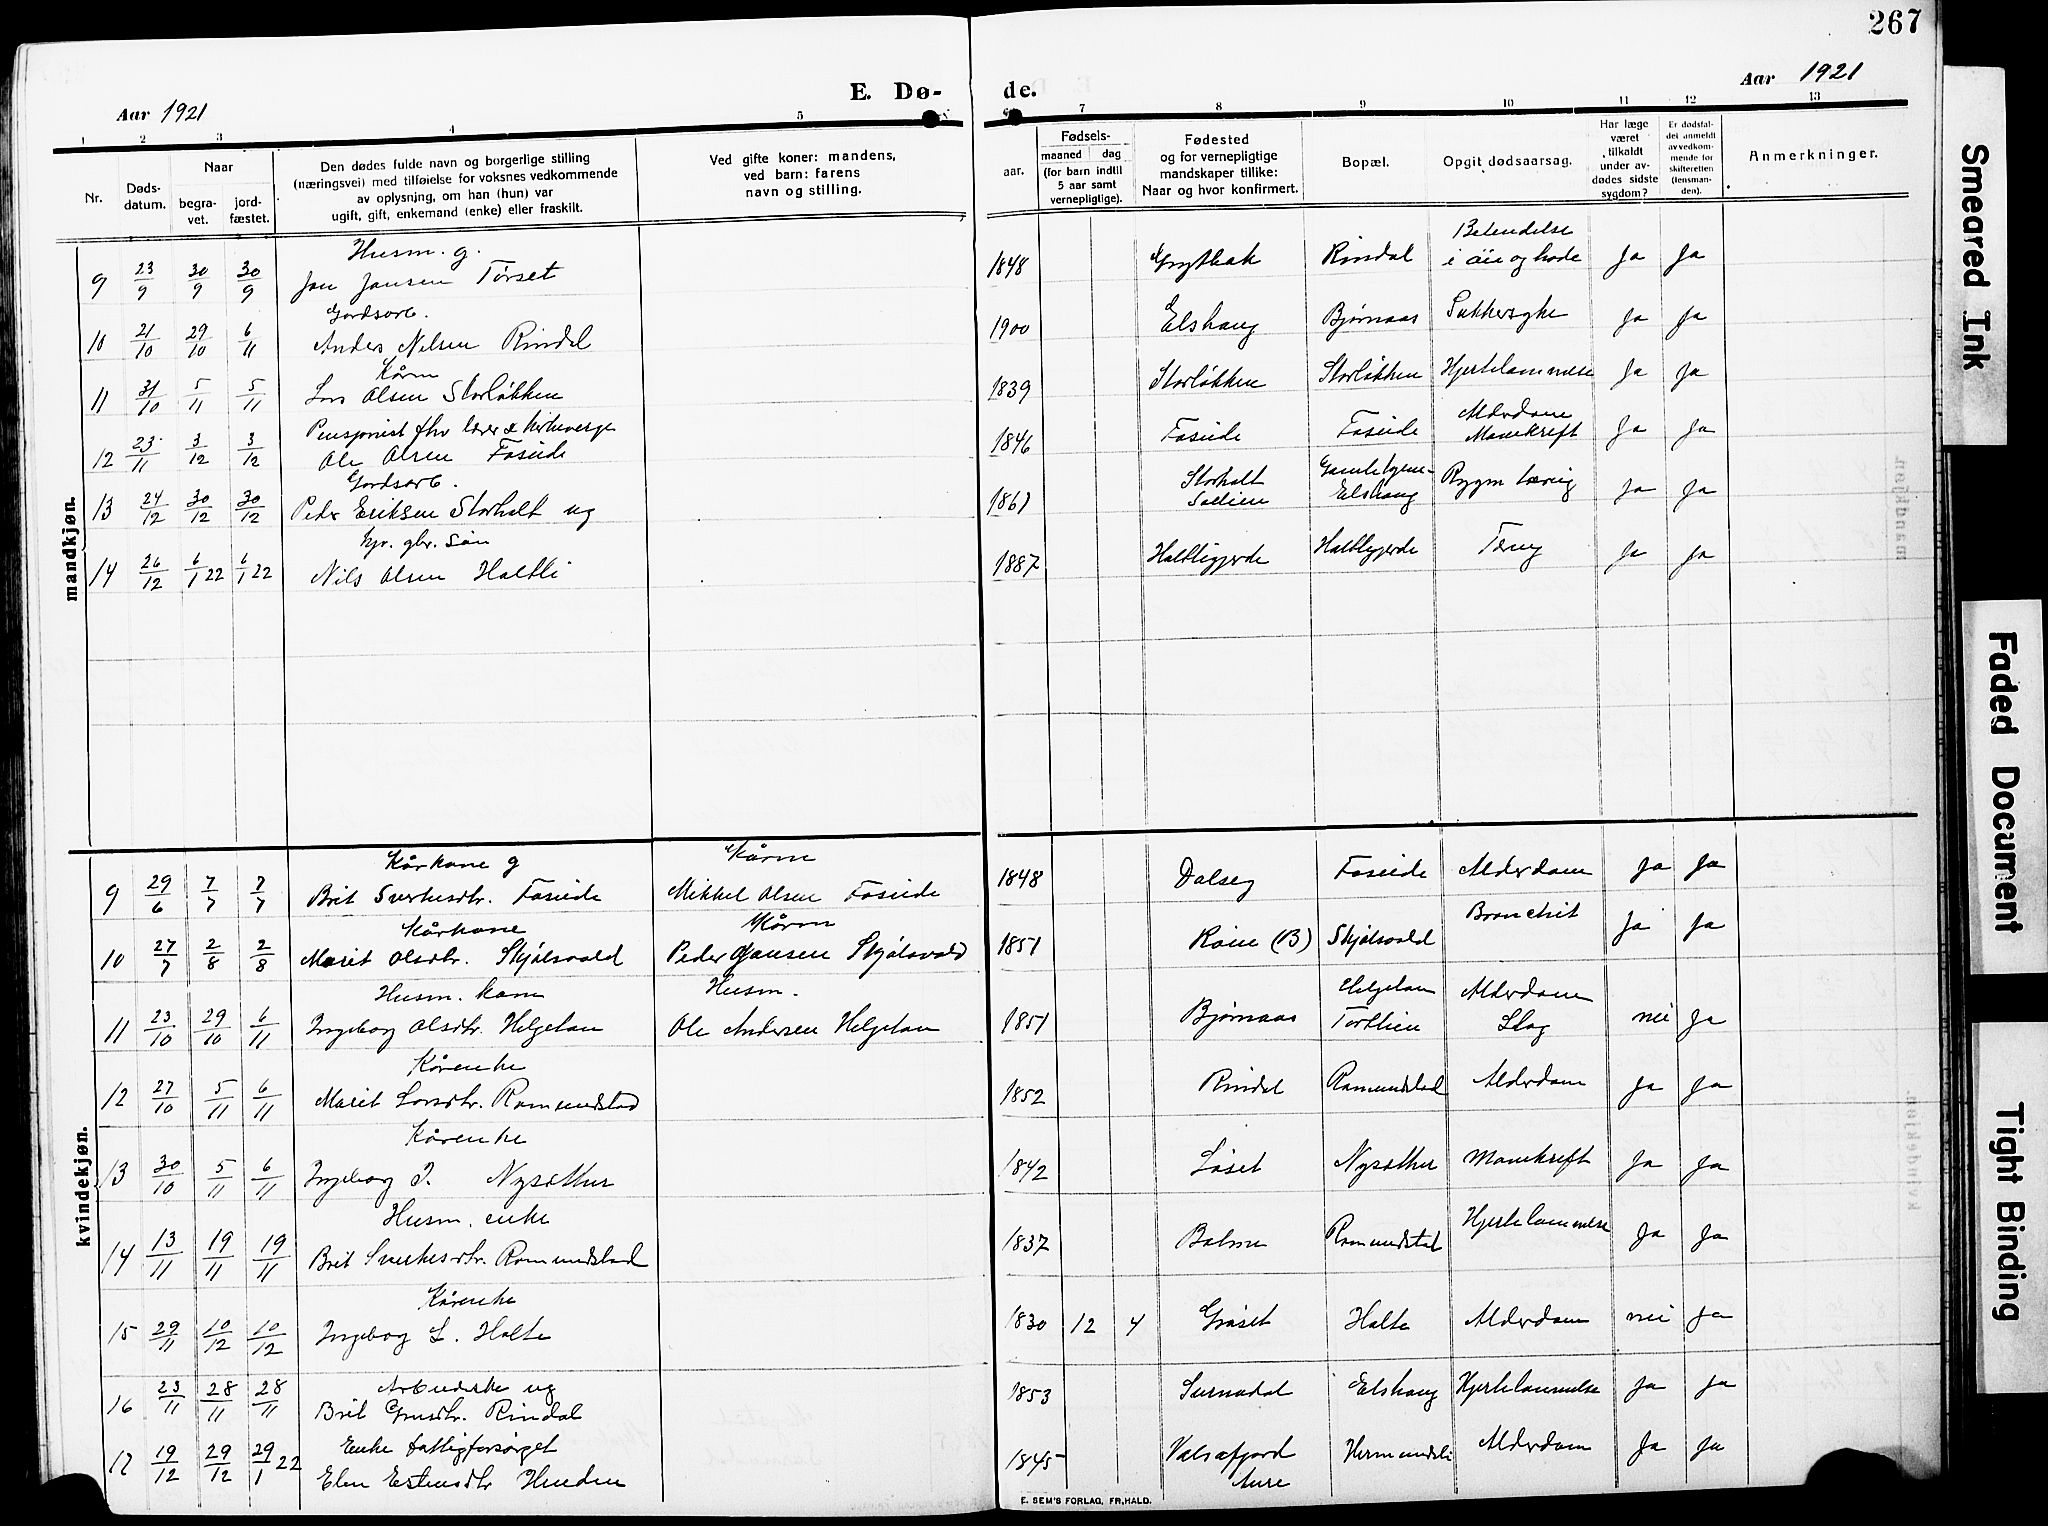 267
Aar 1921
E. Dø-
de.
Aar 1921
1 2 3 4 5
7 8 9 10 11 12 13
Nr.
Døds-
datum.
Naar
begra-
vet.
jord-
fæstet.
Den dødes fulde navn og borgerlige stilling
(næringsvei) med tilføielse for voksnes vedkommende
av oplysning, om han (hun) var
ugift, gift, enkemand (enke) eller fraskilt.
Ved gifte koner: mandens,
ved barn: farens
navn og stilling.
aar.
Fødsels-
maaned dag
(for barn indtil
5 aar samt
vernepligtige).
Fødested
og for vernepligtige
mandskaper tillike:
Naar og hvor konfirmert.
Bopæl.
Opgit dødsaarsag.
Har læge
været
tilkaldt
under av-
dødes sidste
sygdom?
Er dødsfal-
det anmeldt
av vedkom-
mende for
skifteretten
(lensman-
den).
Anmerkninger.
mandkjøn.
Husm. g. Betendelse
9 23/9 30/9 30/9 Jon Jonsen Tørset 1848 Rindal i øie og hode Ja Ja
Gordsarb.
10 21/10 29/10 6/11 Anders Nilsen Rindal 1900 Elshaug Bjørnaas Sukkersyke Ja Ja
Kårm
11 31/10 5/11 5/11 Lars Olsen Storløkken 1839 Storløkken Storløkken Hjertelammelse Ja Ja
Pensjonist fhv lærer & kirkeverge Alderdom
12 23/11 3/12 3/12 Ole Olsen Foseide 1846 Foseide Foseide Mavekreft Ja Ja
Gordsarb. Storholt
13 24/12 30/12 30/12 Peder Eriksen Storholt ug Elshaug Rygm tæring Ja Ja
gbr. søn
14 26/12 6/1 22 6/1 22 Nils Olsen Haltli 1887 Haltligjerde Haltligjerde Tæring Ja Ja
kvindekjøn.
Kårkone g Kårm
9 29/6 7/7 7/7 Brit Sverkesdtr. Foseide Mikkel Olsen Foseide 1848 Dalseg Foseide Alderdom Ja Ja
Kårkone Kårm
10 27/7 2/8 2/8 Marit Olsdtr. Skjølsvold Peder Jansen Skjølsvold 1851 Røen (B) Skjølsvold Bronchit Ja Ja
Husm. kone Husm. Helgetun Alderdom
11 23/10 29/10 6/11 Ingeborg Olsdtr. Helgetun Ole Andersen Helgetun 1851 Bjørnaas Tortlien Slag nei Ja
Kårenke
12 27/10 5/11 6/11 Marit Larsdtr. Romundstad 1852 Rindal Romundstad Alderdom Ja Ja
Kårenke
13 30/10 5/11 6/11 Ingeborg I. Nysether 1842 Løset Nysether Mavekreft Ja Ja
Husm. enke
14 13/11 19/11 19/11 Brit Sverkesdtr. Romundstad 1837 Bolme Romundstad Hjertelammelse Ja Ja
Kårenke
15 29/11 10/12 10/12 Ingeborg L. Holte 1830 12 4 Grøset Holte Alderdom nei Ja
Arbeiderske ug
16 23/11 28/11 28/11 Brit Rindal 1853 Surnadal Elshaug Hjertelammelse Ja Ja
Enke fattigforsørget
17 19/12 29/12 29/1 22 Elen Estensdtr Henden 1845 Valsøfjord Hermundsli Alderdom Ja Ja
Aure
E. SEM'S FORLAG, FR.HALD.
Smeared Ink
Faded Document
Tight Binding